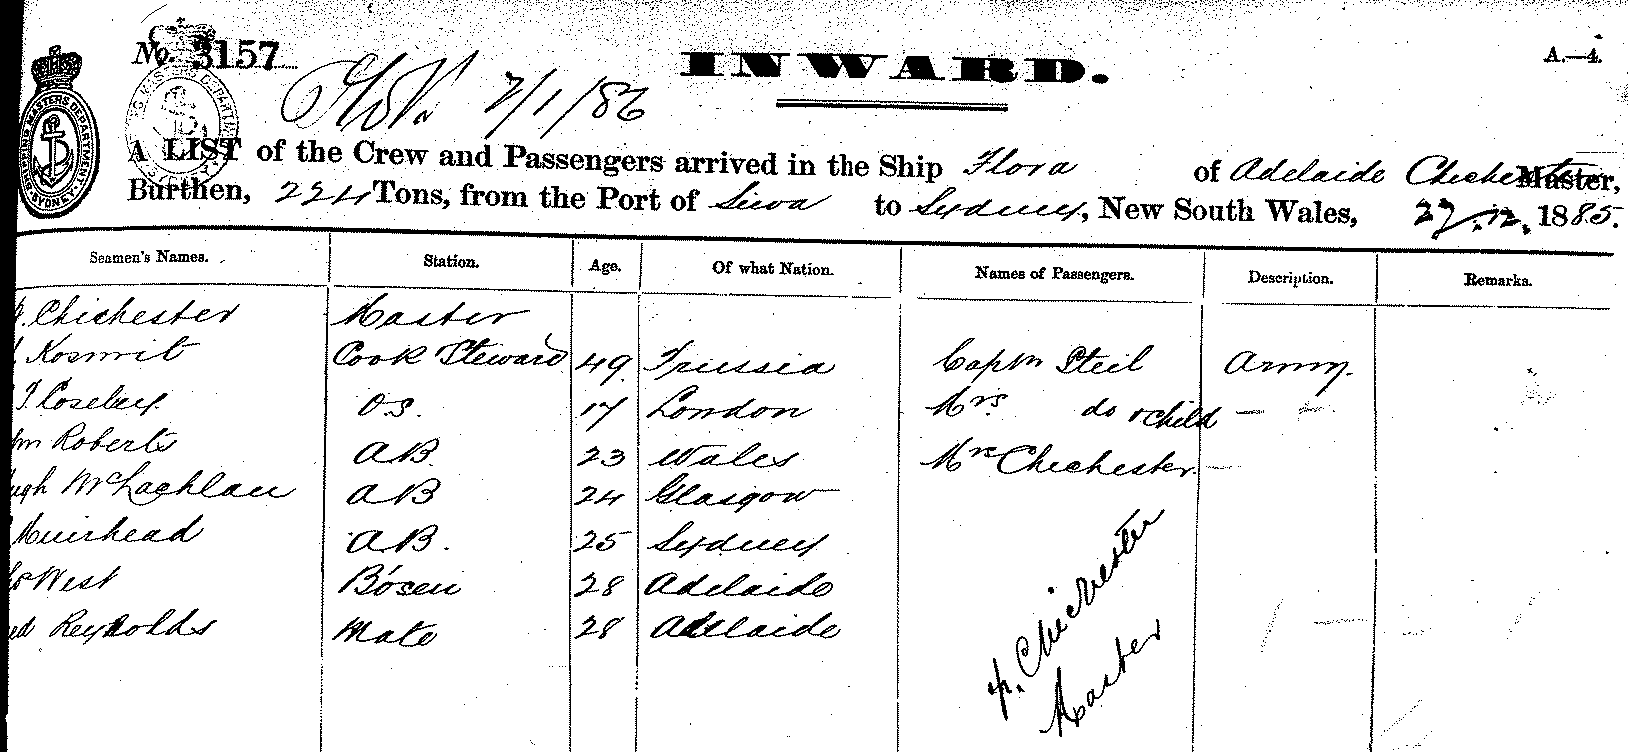 No. 3157
INWARD.
A.—4.
7/1/86
SHIPPING MASTERS DEPARTMENT SYDNEY
A LIST of the Crew and Passengers arrived in the Ship Flora of Adelaide Chichester Master,
Burthen, 224 Tons, from the Port of Suva to Sydney, New South Wales, 27.12. 1885.
Seamen's Names. Station. Age. Of what Nation. Names of Passengers. Description. Remarks.
Chichester Master
Kosmrit Cook Steward 49 Prussia Captn Steil Army.
T Coseley O.S. 17 London Mrs. do & child —
Roberts AB. 23 Wales Mrs Chichester —
ugh McLachlan AB 24 Glasgow
Muirhead AB. 25 Sydney
West Bosen 28 Adelaide
ed Reynolds Mate 28 Adelaide
Chichester
Master